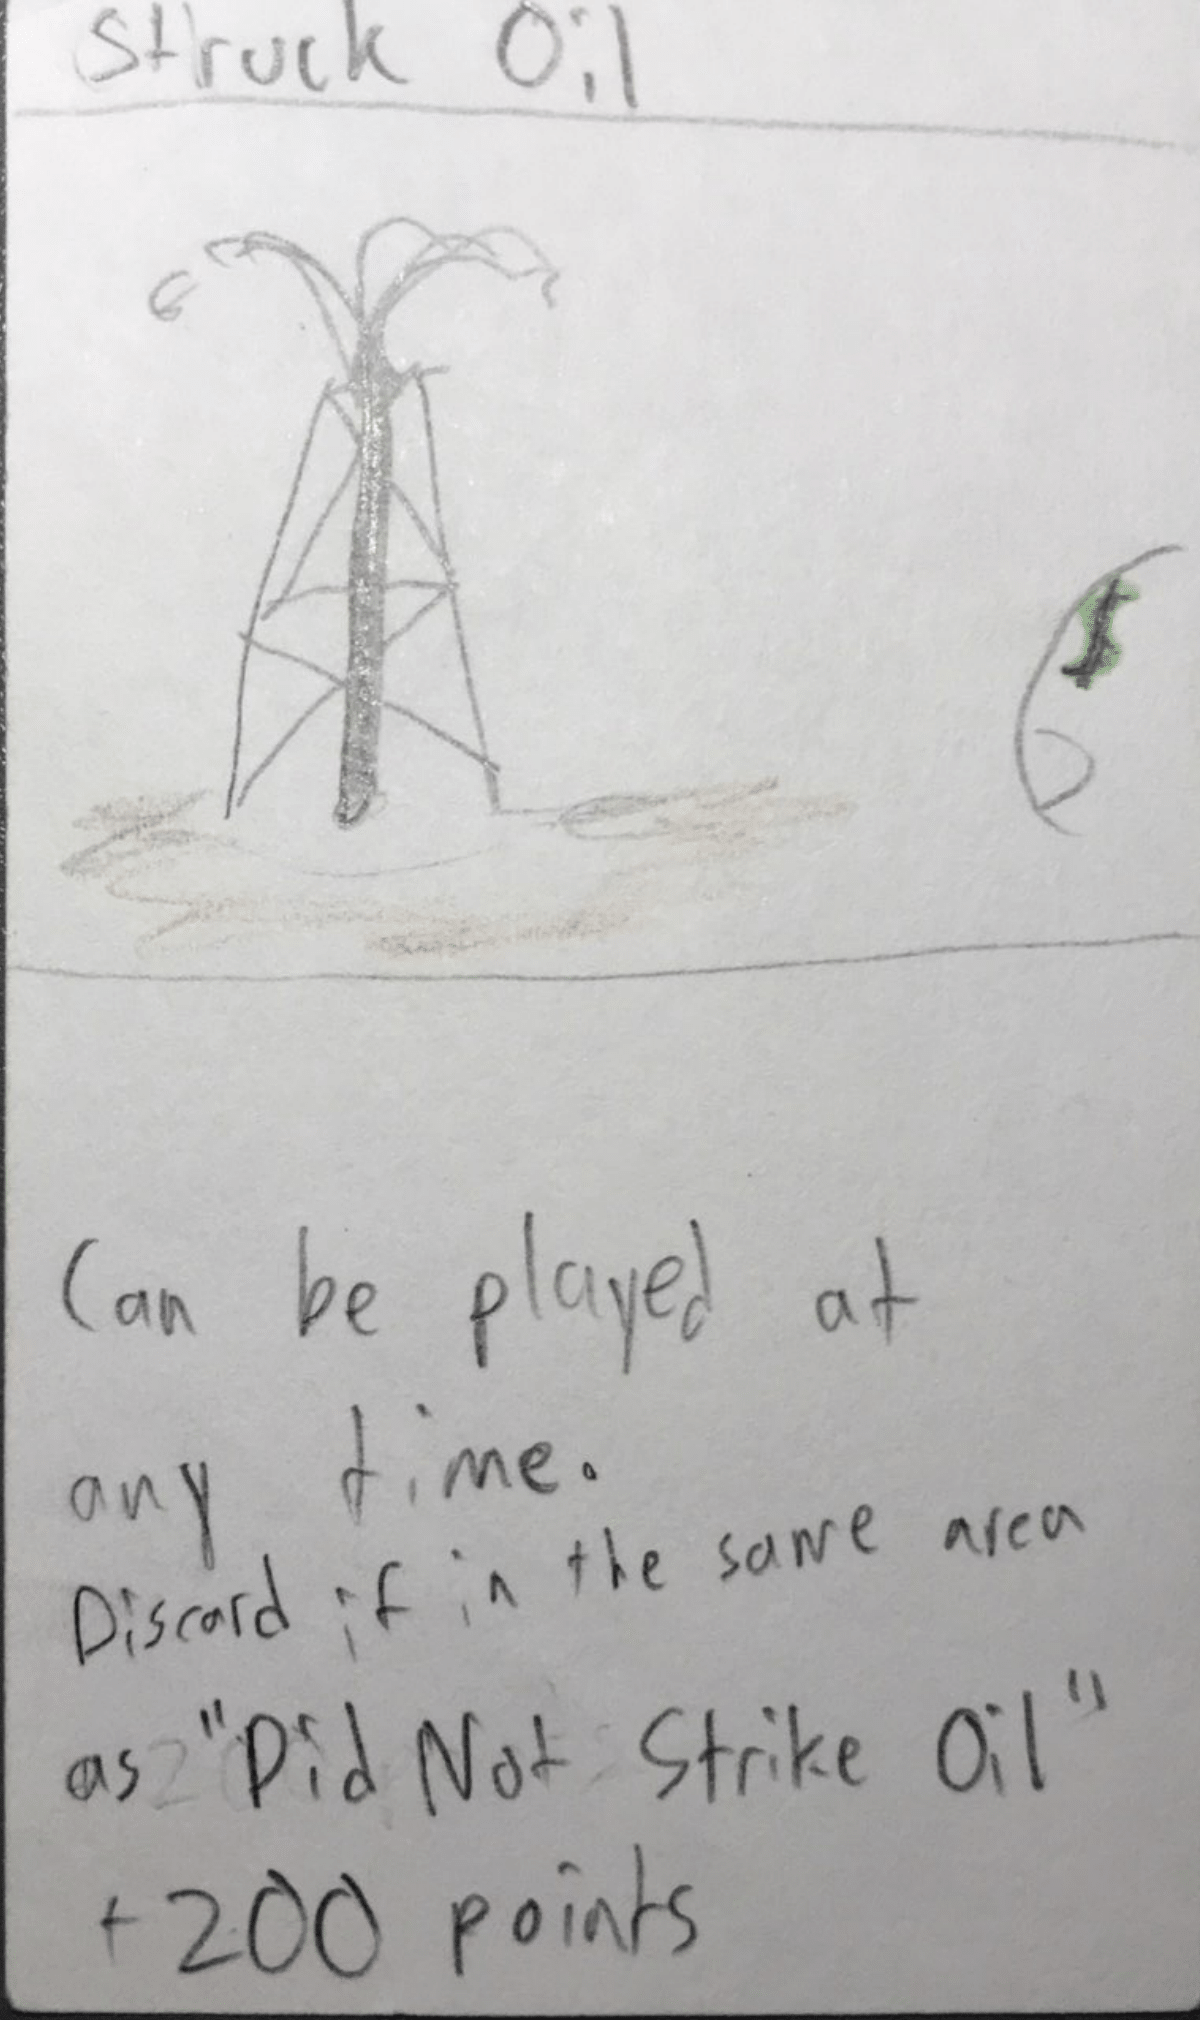 Struck Oil
$
Can be played at
any time.
Discard if in the same area
as "Did Not Strike Oil"
+200 points